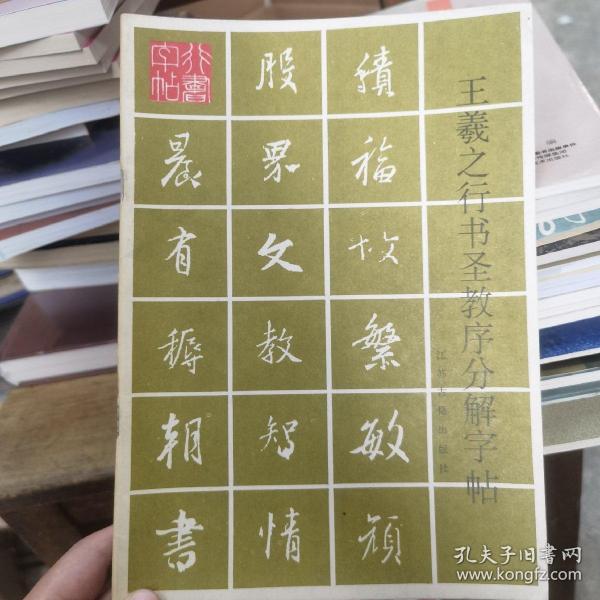 王羲之行书圣教序分解字帖
江苏古籍出版社
行書
字帖
積福故繁敏頑
股界文教智情
晨有耨朝書
孔夫子旧書网
www.kongfz.com